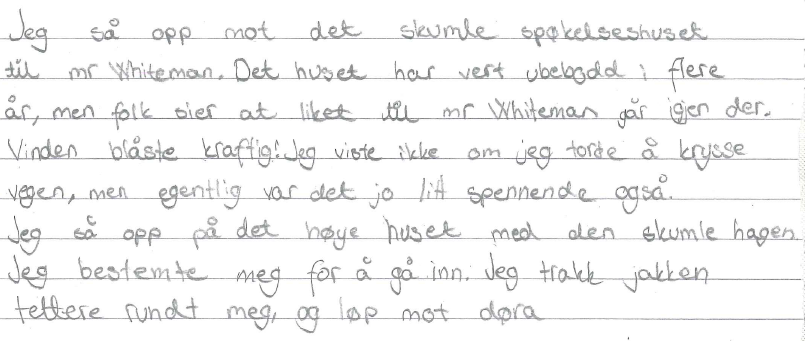 Jeg så opp mot det skumle spøkelseshuset
til mr Whiteman. Det huset har vert ubebodd i flere
år, men folk sier at liket til mr Whiteman går igjen der.
Vinden blåste kraftig! Jeg viste ikke om jeg torde å krysse
vegen, men egentlig var det jo litt spennende også.
Jeg så opp på det høye huset med den skumle hagen
Jeg bestemte meg for å gå inn. Jeg trakk jakken
tettere rundt meg, og løp mot døra